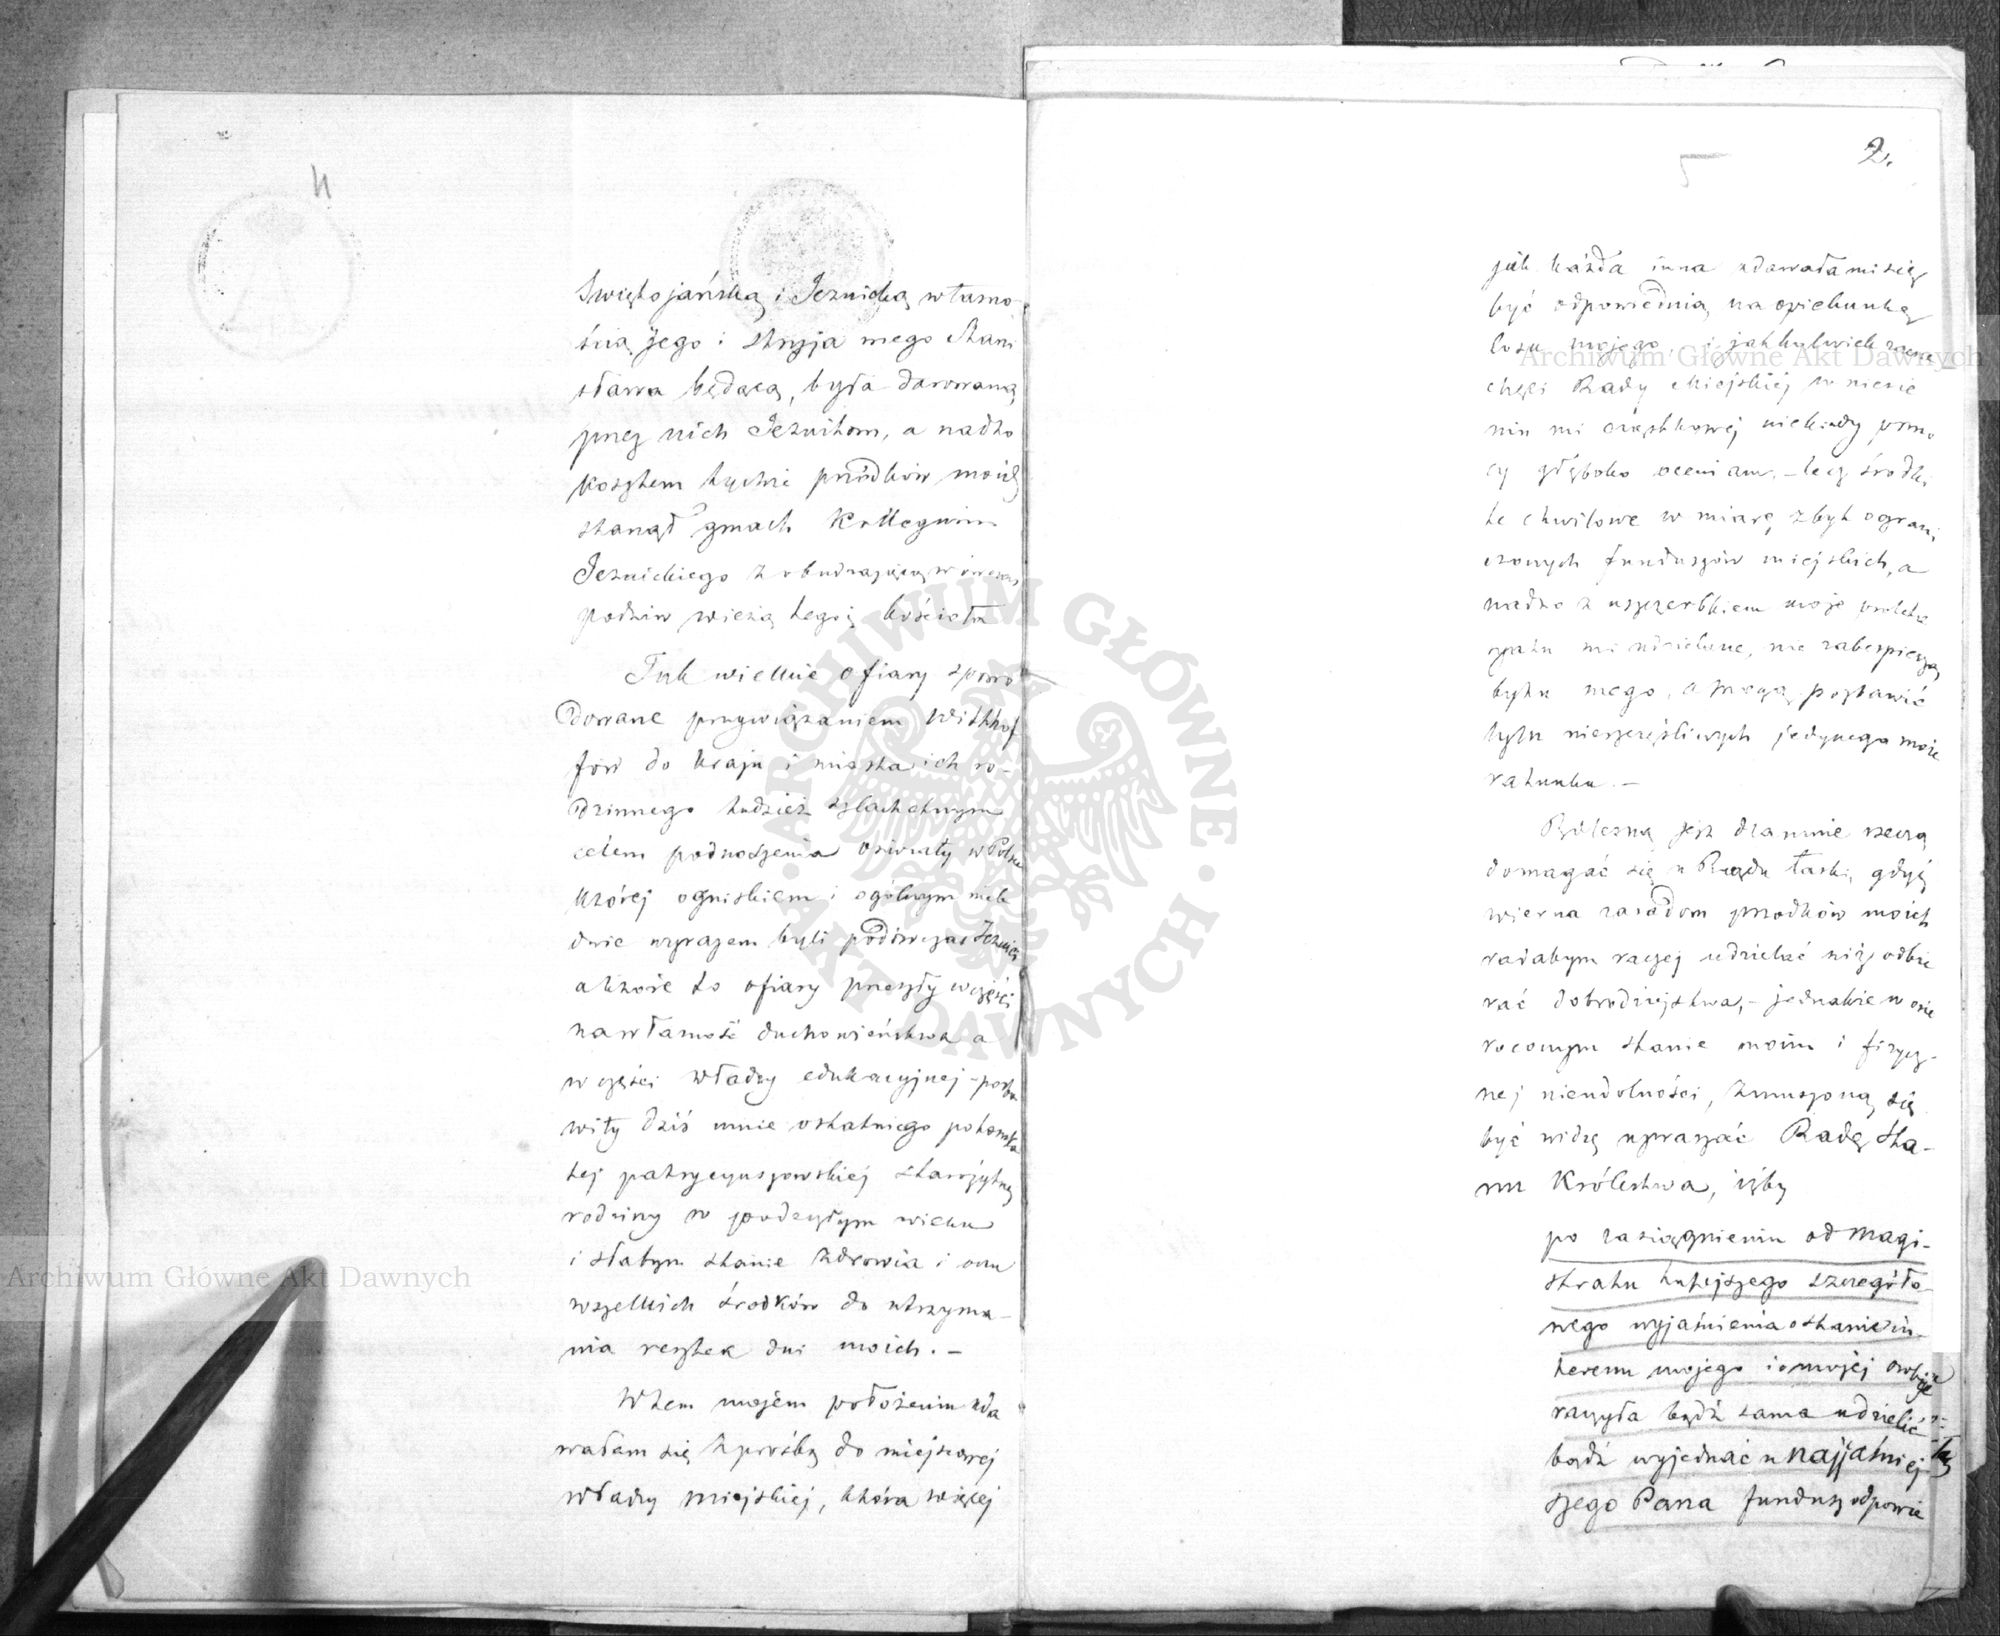 4
Swiętojańską i Jezuicką własno-
ścią Jego i stryja mego Stani
sława będącą, była darowaną
przez nich Jezuitom, a nadto
kosztem tychże przodków moich
stanął gmach Kollegium
Jezuickiego z obudzającą wówczas
podziw wieżą tegoż kościoła
Tak wielkie ofiary spowo
dowane przywiązaniem Withof
fów do kraju i miasta ich ro-
dzinnego tudzież szlachetnym
celem podnoszenia oświaty w Polsce
której ogniskiem i ogólnym
wyrazem byli podówczas Jezuici
a które to ofiary przeszły w części
na własność duchowieństwa a
w części władzy edukacyjnej - posta
wiły dziś mnie ostatniego potomka
tej patrycyuszowskiej starożytnej
rodziny w podeszłym wieku
i słabym stanie zdrowia i
wszelkich środków do utrzyma-
nia resztek dni moich. -
W tem mojem położeniu uda
wałam się z prośbą do miejscowej
władzy miejskiej, która więcej
2.
5
jak każda inna zdawała mi się
być odpowiednią na opiekunkę
losu mojego, i jakkolwiek zacne
chęci Rady Miejskiej w niesie
niu mi cząstkowej niekiedy pomo
cy głęboko oceniam, - lecz środki
te chwilowe w miarę zbyt ograni
czonych funduszów miejskich, a
nadto z uszczerbkiem może proleta
ryatu mi udzielane, nie zabezpieczają
bytu mego, a mogą pozbawić
tylu nieszczęśliwych jedynego może
ratunku. -
Bolesną jest dla mnie rzeczą
domagać się u Rządu łaski, gdyż
wierna zasadom przodków moich
radabym raczej udzielać niż odbie
rać dobrodziejstwa, - jednakże w osie
roconym stanie moim i fizycz-
nej nieudolności, zmuszoną się
być widzę upraszać Radę Sta-
nu Królestwa, iżby
po zasiągnieniu od Magi-
stratu tutejszego szczegóło-
wego wyjaśnienia o stanie in-
teresu mojego i o mojej osobie
raczyła bądź sama udzielić
bądź wyjednać u Najjaśniej
szego Pana fundusz odpowie
Archiwum Główne Akt Dawnych
Archiwum Główne Akt Dawnych
ARCHIWUM GŁÓWNE · AKT DAWNYCH ·